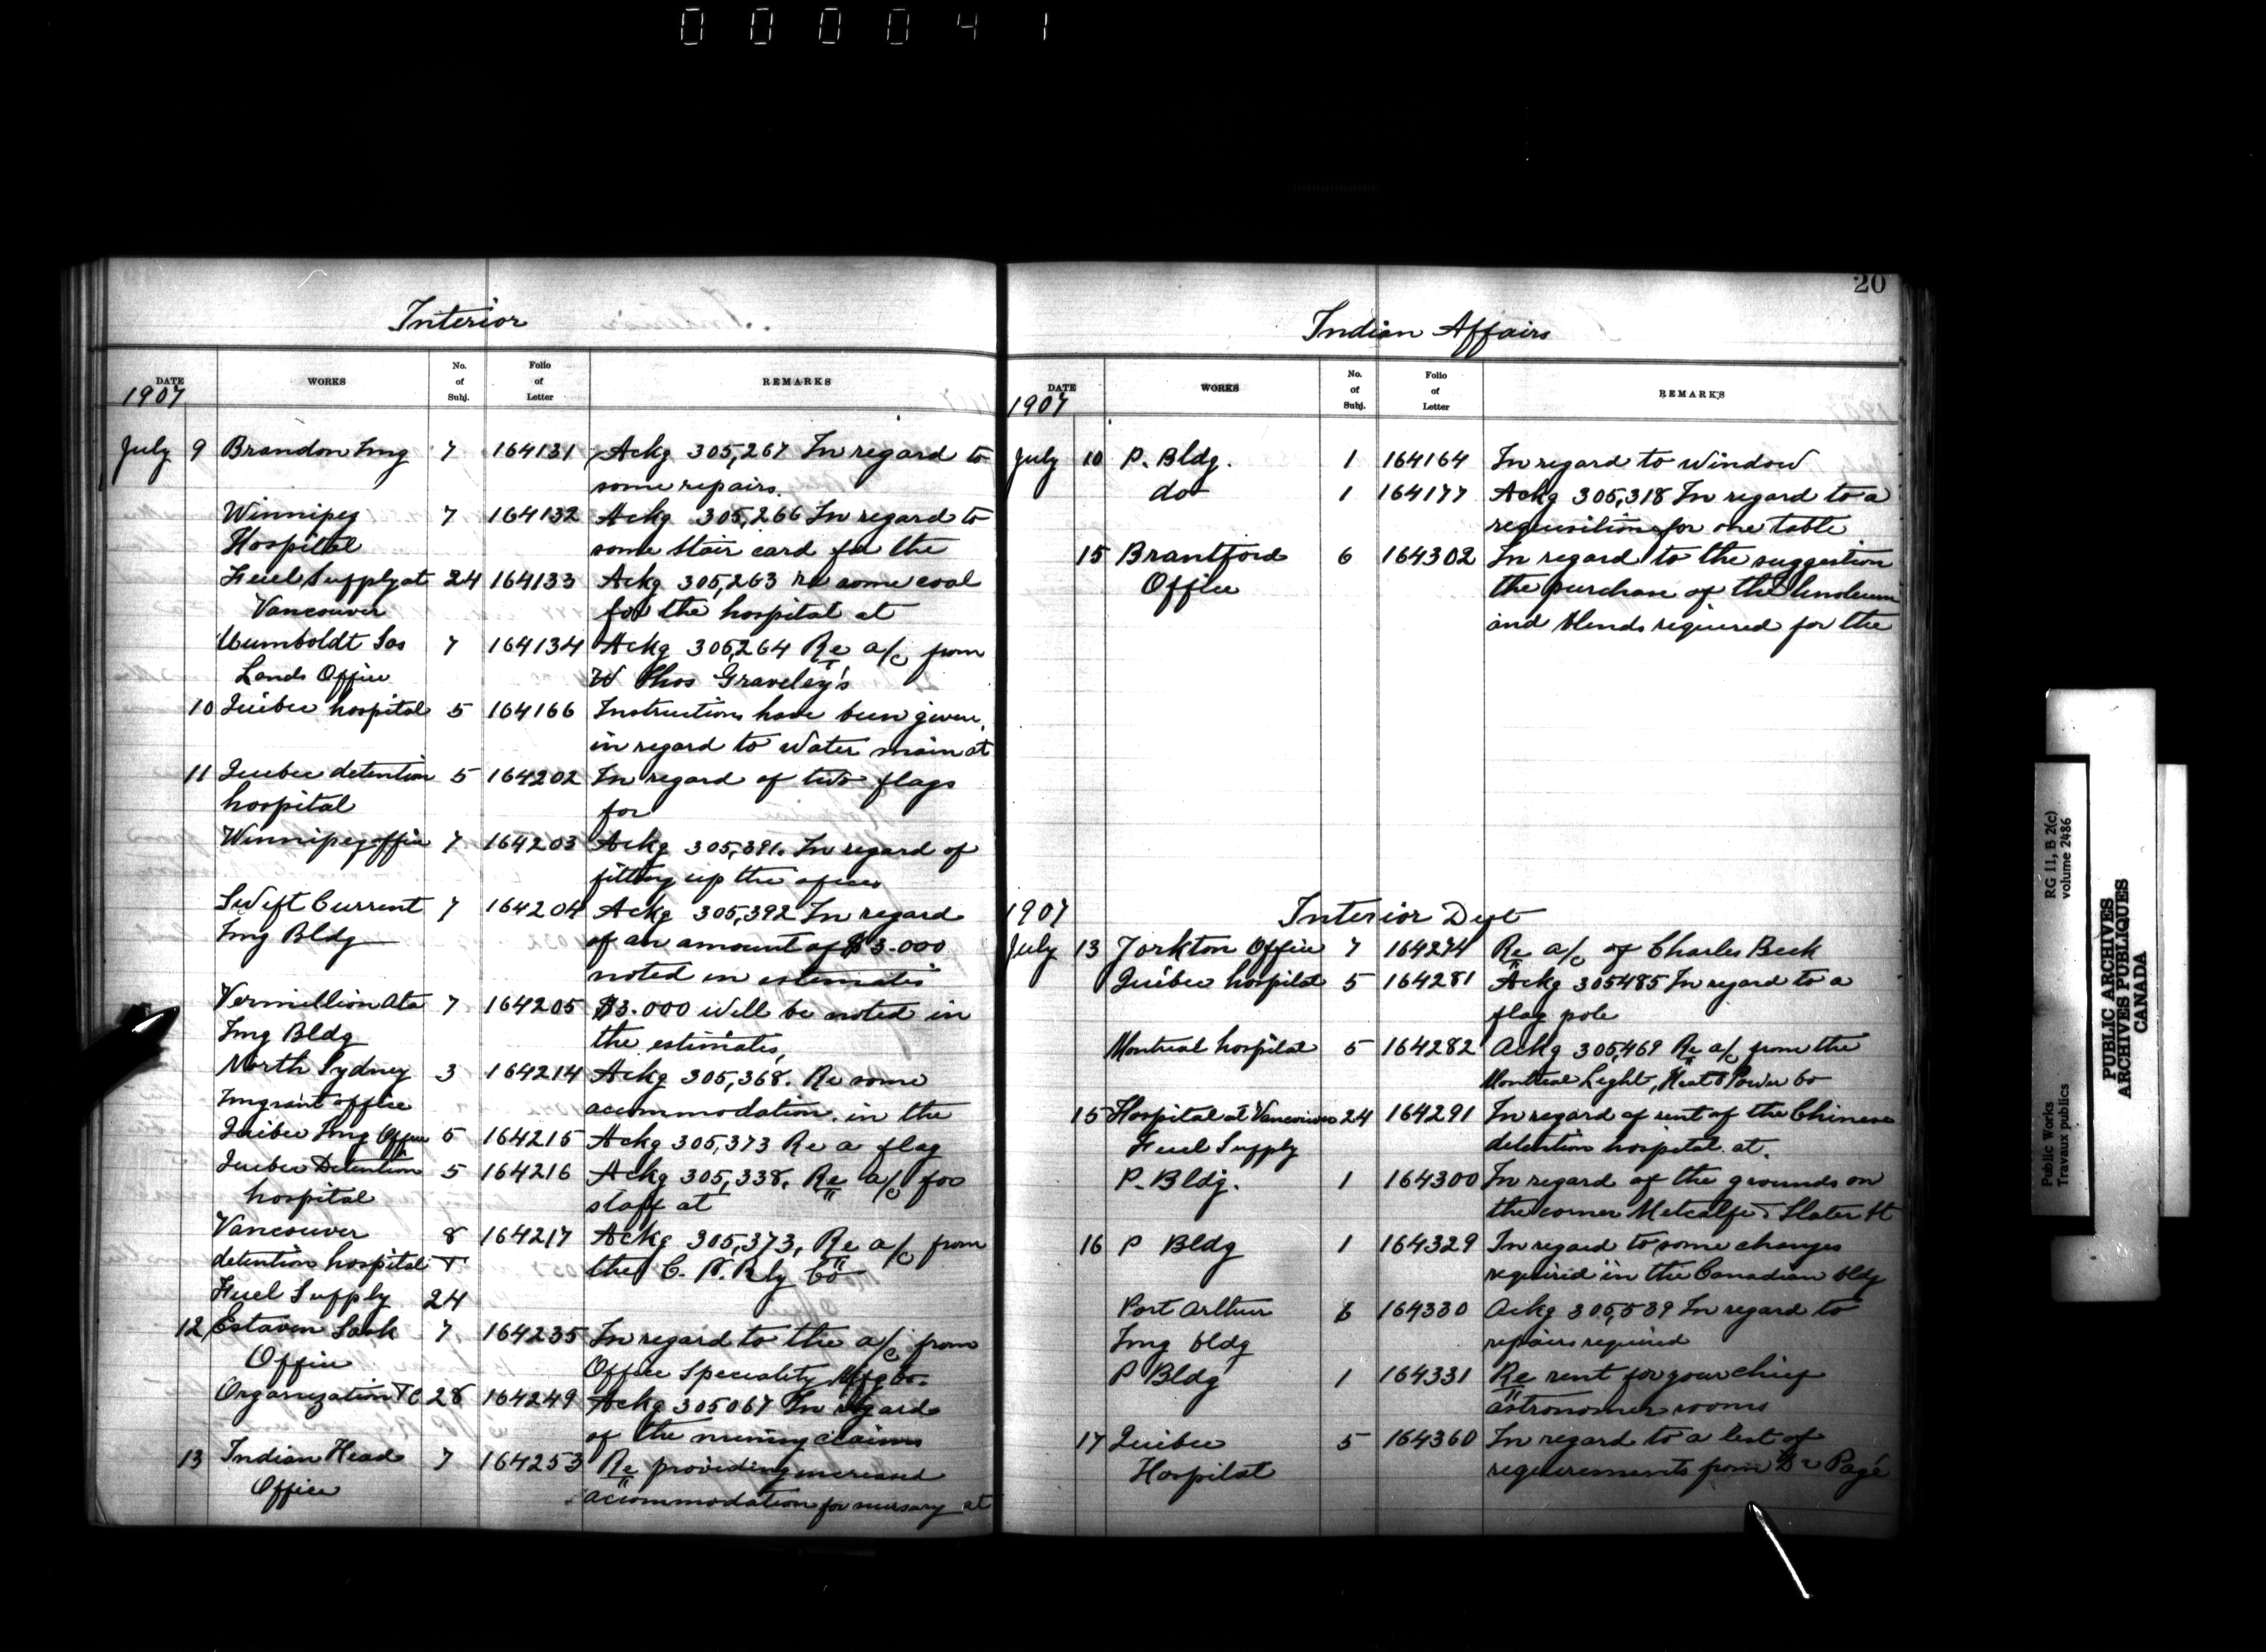 000041
Interior
DATE WORKS No. of Subj. Folio of Letter REMARKS
1907
July 9 Brandon Img 7 164131 Ackg 305,267 In regard to
some repairs.
Winnipeg 7 164132 Ackg 305,266 In regard to
Hospital some stair card for the
Fuel Supply at 24 164133 Ackg 305,263 re some coal
Vancouver for the hospital at
Humboldt Sas 7 164134 Ackg 305,264 Re a/c from
Lands Office W Thos Graveley's
10 Quebec hospital 5 164166 Instructions have been given
in regard to water main at
11 Quebec detention 5 164202 In regard of two flags
hospital for
Winnipeg office 7 164203 Ackg 305,391. In regard of
fitting up the
Swift Current 7 164204 Ackg 305,392 In regard
Img Bldg of an amount of $3.000
noted in estimates
Vermillion Ata 7 164205 $3.000 will be noted in
Img Bldg the estimates,
North Sydney 3 164214 Ackg 305,368. Re some
Imgrant office acommodation in the
Quebec Img Office 5 164215 Ackg 305,373 Re a flag
Quebec Detention 5 164216 Ackg 305,338. Re a/c for
hospital staff at
Vancouver 8 164217 Ackg 305,373, Re a/c from
detention hospital T the C. P. Rly Co
Fuel Supply 24
12 Estaven Sask 7 164235 In regard to the a/c from
Office Office Speciality Mfg Co.
Organization TC 28 164249 Ackg 305067 In regard
of the mining claims
13 Indian Head 7 164253 Re providing increased
Office accommodation for nursary at
20
Indian Affairs
DATE WORKS No. of Subj. Folio of Letter REMARKS
1907
July 10 P. Bldg. 1 164164 In regard to window
do 1 164177 Ackg 305,318 In regard to a
requisition for one table
15 Brantford 6 164302 In regard to the suggestion
Office the purchase of the linoleum
and blends required for the
1907 Interior Dept
July 13 Yorkton Office 7 164274 Re a/c of Charles Beck
Quebec hospital 5 164281 Ackg 305485 In regard to a
flag pole
Montreal hospital 5 164282 Ackg 305,469 Re a/c from the
Montreal Light, Heat & Power Co
15 Hospital at Vancouver 24 164291 In regard of rent of the Chinese
Fuel Supply detention hospital at.
P. Bldg. 1 164300 In regard of the grounds on
the corner Metcalfe & Slater St
16 P Bldg 1 164329 In regard to some changes
required in the Canadian bldg
Port Arthur 6 164330 Ackg 305,539 In regard to
Img bldg repairs required
P Bldg 1 164331 Re rent for your chief
astronomer rooms
17 Quebec 5 164360 In regard to a list of
Hospital requirements from Dr Pagé
Public Works
Travaux publics
RG 11, B 2(c)
volume 2486
PUBLIC ARCHIVES
ARCHIVES PUBLIQUES
CANADA